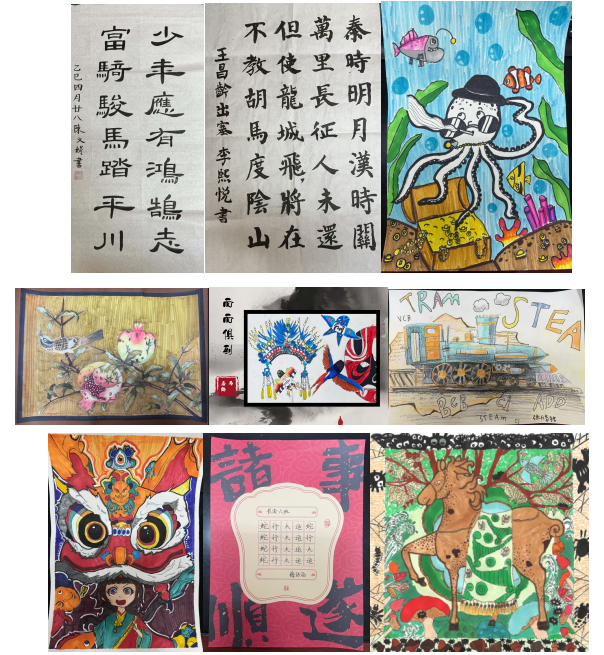 少年應有鴻鵠志
富騎駿馬踏平川
乙巳四月廿八陳文書
秦時明月漢時關
萬里長征人未還
但使龍城飛將在
不教胡馬度陰山
王昌齡出塞 李熙悅書
面面俱到
TRAM STEA
VCB
BGB CJ ADD
STEAM
諸事
順遂
蛇行大运蛇
蛇行大运蛇
蛇行大运蛇
蛇行大运蛇